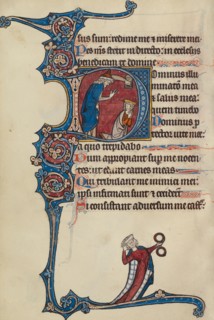 sus sum: redime me & miserere mei
Pes ms stetit in directo: in ecclesiis
benedicam te domine
Dominus illu
minatio mea
& salus mea:
quem timebo
Dominus p
tector vite mee:
a quo trepidabo
Dum appropiant sup me nocen
tes: ut edant carnes meas
Qui tribulant me inimici mei:
ipsi infirmati sunt & cecider
Si consistant adversum me cast